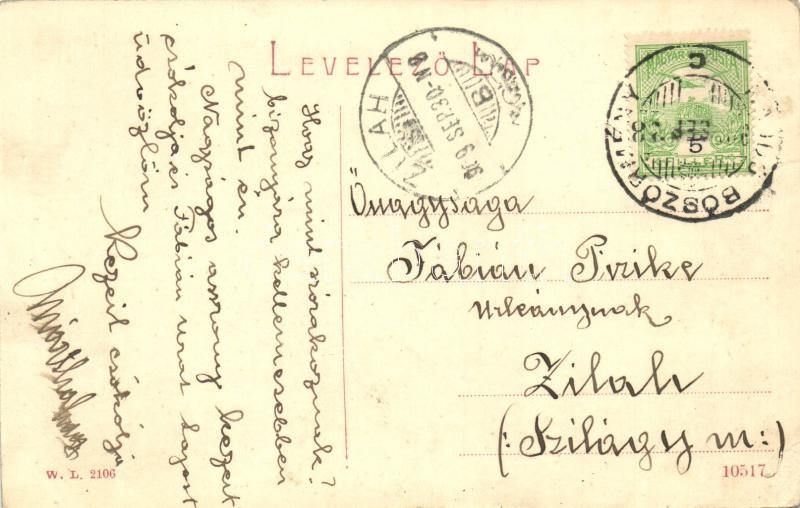 LEVELEZŐ LAP
ZILAH
909 SEP. 30. N8
BÖSZÖRMÉNY
C
Hogy mint szórakoznak?
bizonyára kellemesebben
mint én.
Nagyságos asszony kezeit
csókolja és Fábián urat
üdvözlöm
Kezeit csókolja
Őnagysága
Fábián Pirike
urleánynak
Zilah
(: Szilágy m:)
W. L. 2106
10517